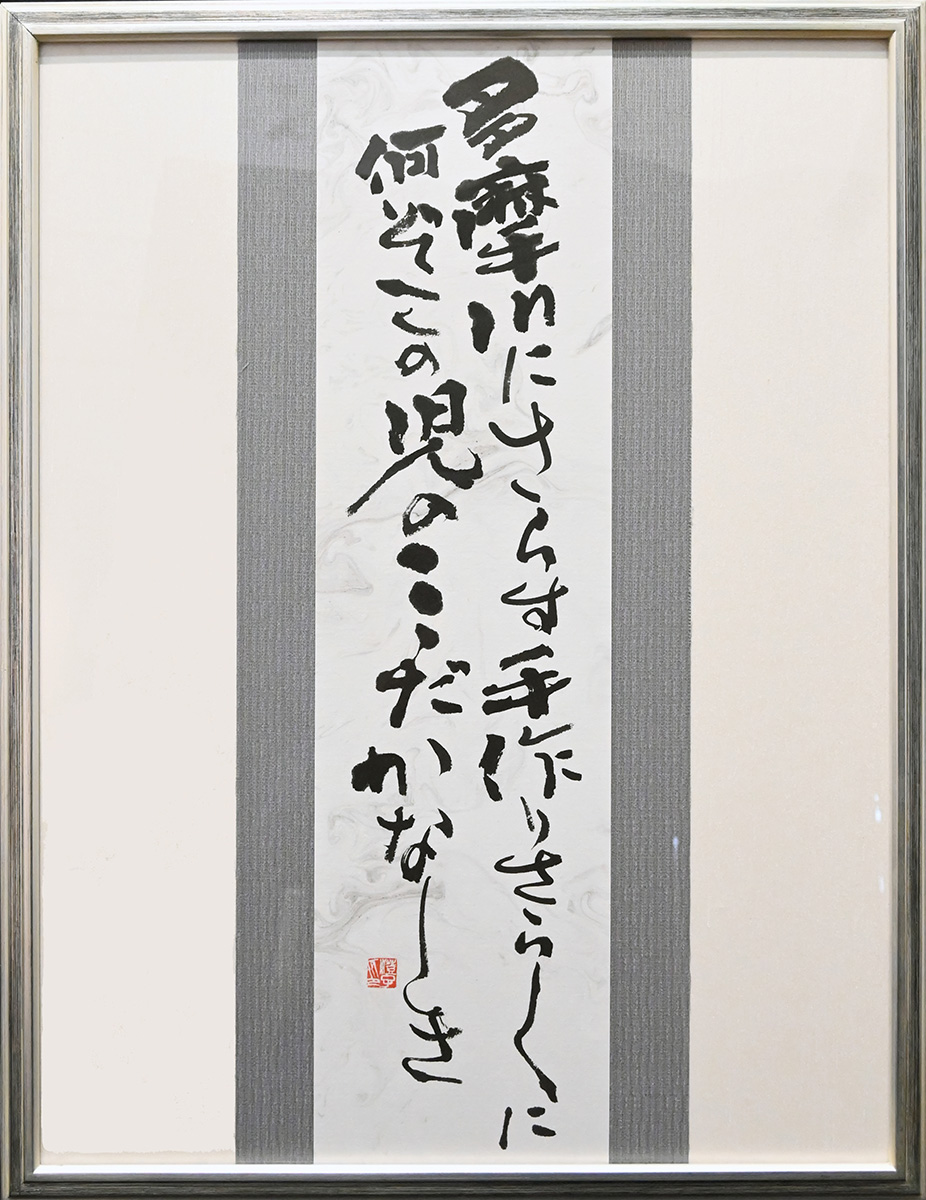 多摩川にさらす手作りさら〱に
何ぞこの児のこゝだかなしき